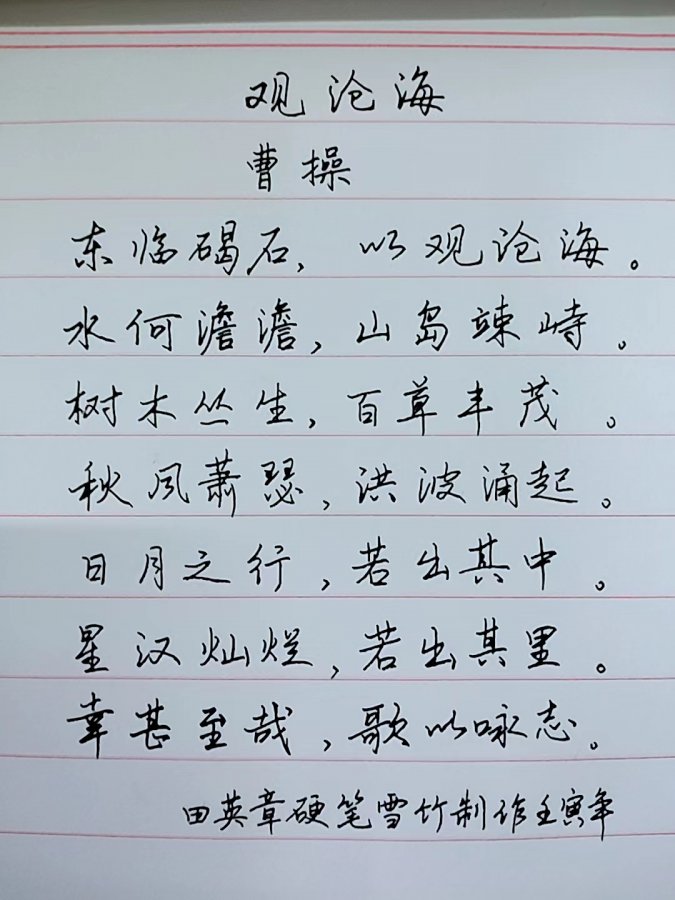 观沧海
曹操
东临碣石，以观沧海。
水何澹澹，山岛竦峙。
树木丛生，百草丰茂。
秋风萧瑟，洪波涌起。
日月之行，若出其中。
星汉灿烂，若出其里。
幸甚至哉，歌以咏志。
田英章硬笔雪竹制作壬寅年